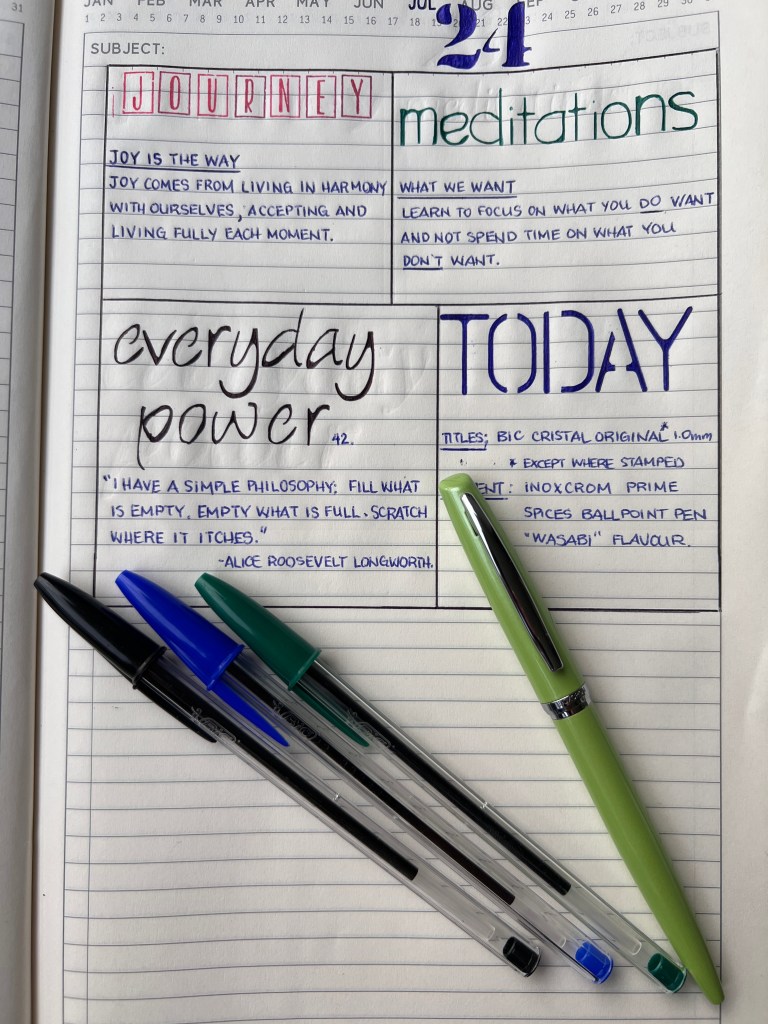 JAN FEB MAR APR MAY JUN JUL AUG SEP
31
24
SUBJECT:
JOURNEY
JOY IS THE WAY
JOY COMES FROM LIVING IN HARMONY
WITH OURSELVES, ACCEPTING AND
LIVING FULLY EACH MOMENT.
meditations
WHAT WE WANT
LEARN TO FOCUS ON WHAT YOU DO WANT
AND NOT SPEND TIME ON WHAT YOU
DON'T WANT.
everyday
power 42.
"I HAVE A SIMPLE PHILOSOPHY; FILL WHAT
IS EMPTY. EMPTY WHAT IS FULL. SCRATCH
WHERE IT ITCHES."
-ALICE ROOSEVELT LONGWORTH.
TODAY
TITLES; BIC CRISTAL ORIGINAL* 1.0mm
* EXCEPT WHERE STAMPED
ENT: INOXCROM PRIME
SPICES BALLPOINT PEN
"WASABI" FLAVOUR.